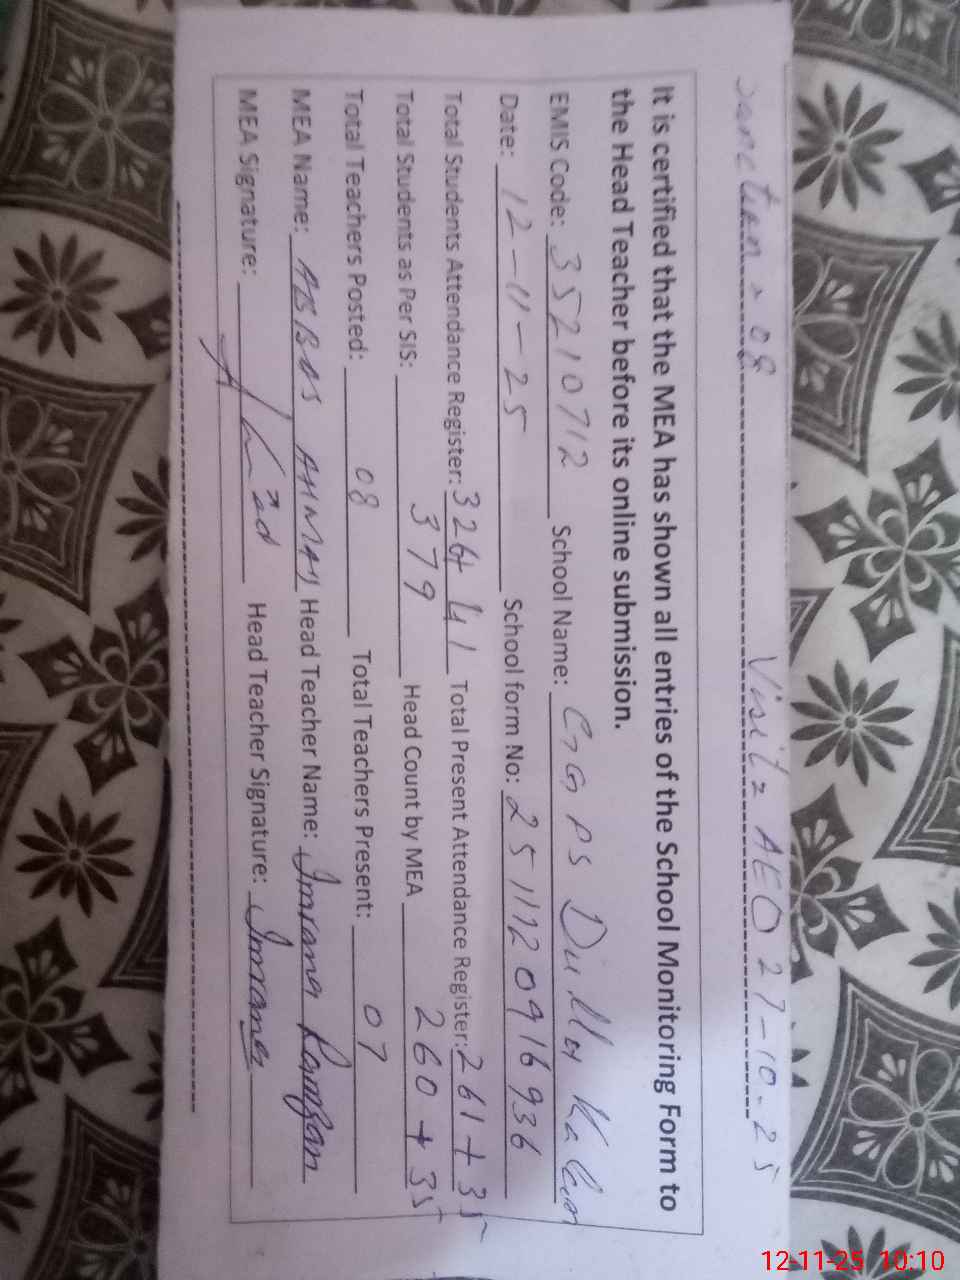 Sanction = 08 Visit = AEO 27-10-25
It is certified that the MEA has shown all entries of the School Monitoring Form to
the Head Teacher before its online submission.
EMIS Code: 35210712 School Name: GGPS Dulla Kalan
Date: 12-11-25 School form No: 251112 0916936
Total Students Attendance Register: 326+41 Total Present Attendance Register: 261+35
Total Students as Per SIS: 379 Head Count by MEA 260+35
Total Teachers Posted: 08 Total Teachers Present: 07
MEA Name: ABBAS AHMAD Head Teacher Name: Imrana Ramzan
MEA Signature: Head Teacher Signature: Imrana
12-11-25 10:10